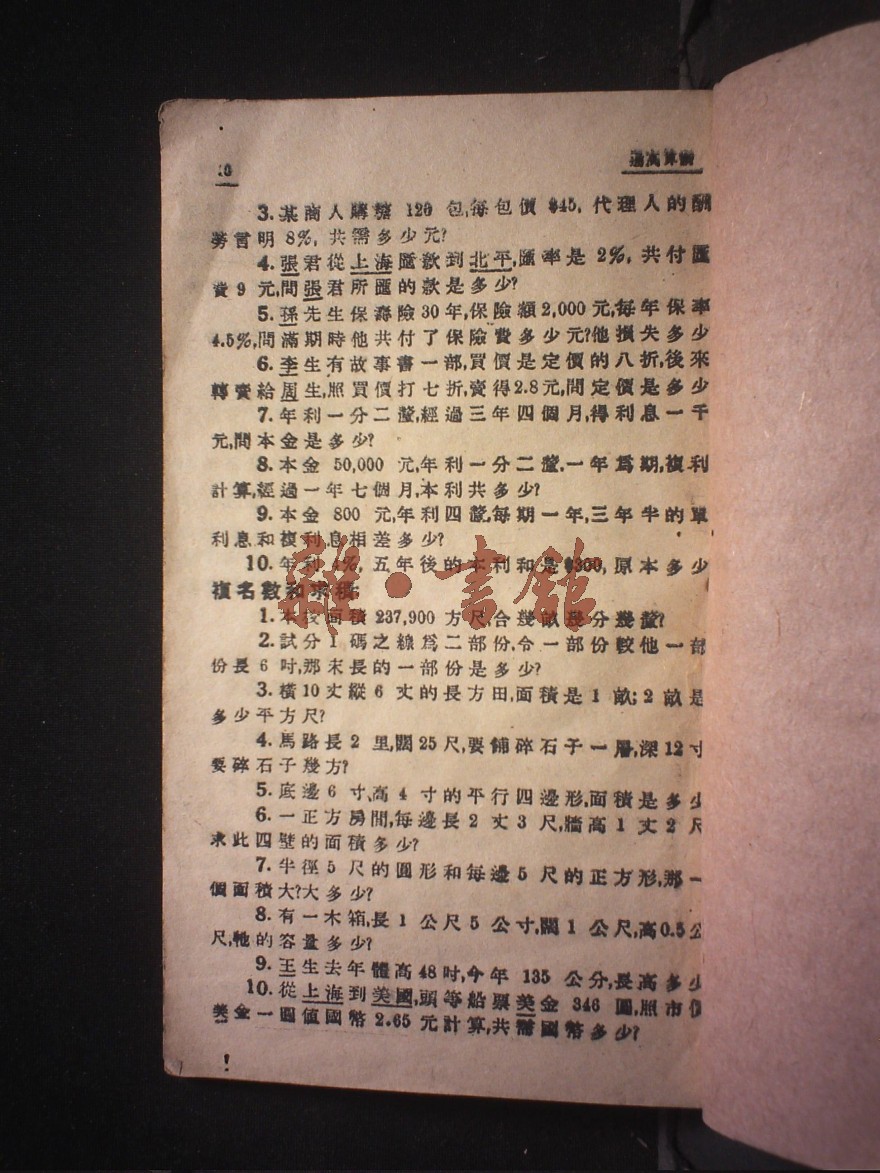 10
高算術
3. 某商人購糖 120 包,每包價 $45, 代理人的酬
勞言明 8%, 共需多少元?
4. 張君從上海匯款到北平,匯率是 2%, 共付匯
費 9 元,問張君所匯的款是多少?
5. 孫先生保壽險30年,保險額2,000元,每年保率
4.5%,問滿期時他共付了保險費多少元?他損失多少
6. 李生有故事書一部,買價是定價的八折,後來
轉賣給周生,照買價打七折,賣得2.8元,問定價是多少
7. 年利一分二釐,經過三年四個月,得利息一千
元,問本金是多少?
8. 本金 50,000 元,年利一分二釐,一年爲期,複利
計算,經過一年七個月,本利共多少?
9. 本金 800 元,年利四釐,每期一年,三年半的單
利息和複利息相差多少?
10. 年利 4%, 五年後的本利和是 $300, 原本多少
複名數和求積:
1. 本校面積 237,900 方尺,合幾畝幾分幾釐?
2. 試分 1 碼之線爲二部份,令一部份較他一部
份長 6 吋,那末長的一部份是多少?
3. 橫10丈縱 6 丈的長方田,面積是 1 畝; 2 畝是
多少平方尺?
4. 馬路長 2 里,闊25尺,要鋪碎石子一層,深12寸
要碎石子幾方?
5. 底邊 6 寸,高 4 寸的平行四邊形,面積是多少
6. 一正方房間,每邊長 2 丈 3 尺,牆高 1 丈 2 尺
求此四壁的面積多少?
7. 半徑 5 尺的圓形和每邊 5 尺的正方形,那一
個面積大?大多少?
8. 有一木箱,長 1 公尺 5 公寸,闊 1 公尺,高0.5公
尺,牠的容量多少?
9. 王生去年體高48吋,今年 135 公分,長高多少
10. 從上海到美國,頭等船票美金 346 圓,照市價
美金一圓值國幣 2.65 元計算,共需國幣多少?
雜·書館